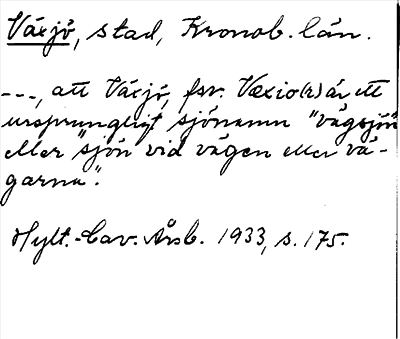 Växjö, stad, Kronob. län.
---, att Växjö, fsv. Væxio(r) är ett
ursprungligt sjönamn "vägsjön"
eller "sjön vid vägen eller vä-
garna".
Hylt.-Cav. Årsb. 1933, s. 175.